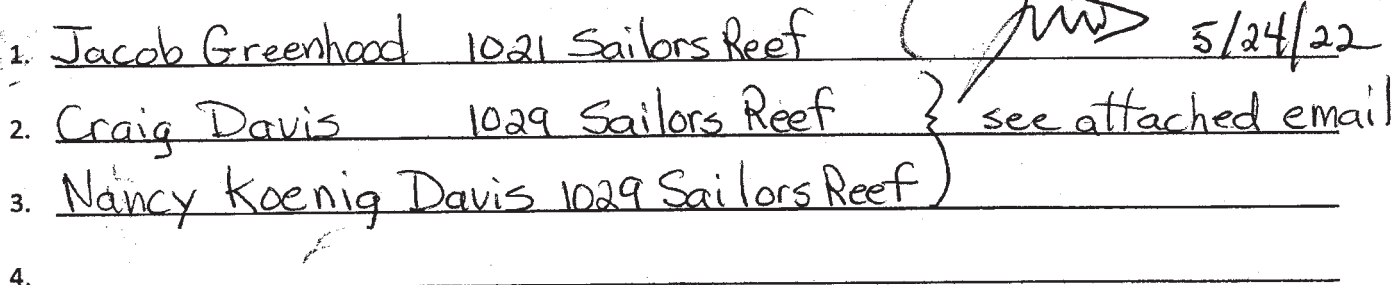 1. Jacob Greenhood 1021 Sailors Reef 5/24/22
2. Craig Davis 1029 Sailors Reef } see attached email
3. Nancy Koenig Davis 1029 Sailors Reef )
4.